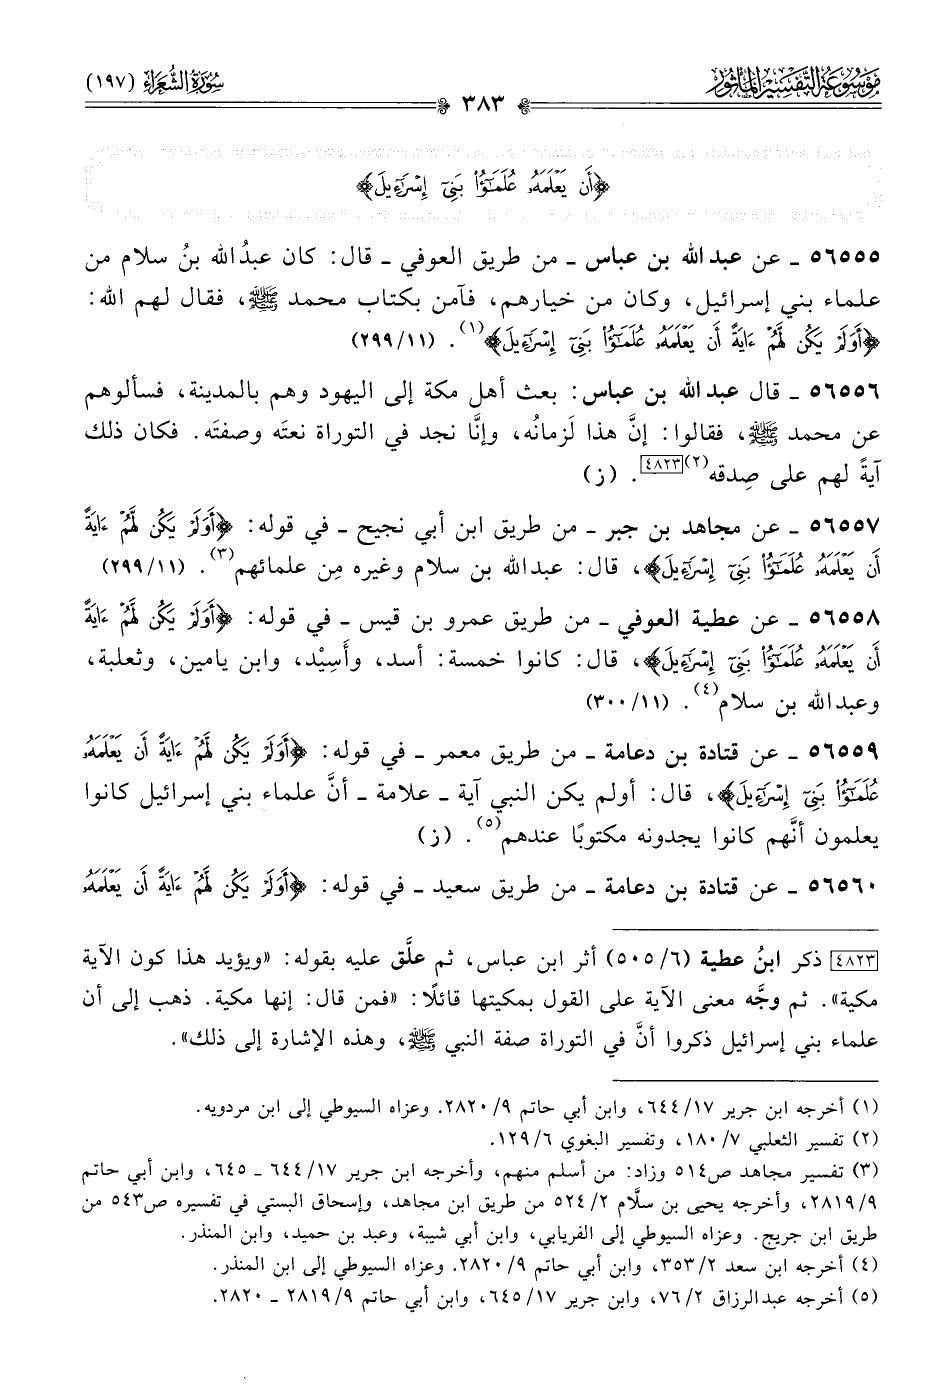 موسوعة التفسير المأثور
سورة الشعراء (١٩٧)
٣٨٣
﴿أَن يَعْلَمَهُۥ عُلَمَٰٓؤُا۟ بَنِىٓ إِسْرَٰٓءِيلَ﴾
٥٦٥٥٥ ـ عن عبد الله بن عباس ـ من طريق العوفي ـ قال: كان عبدُ الله بنُ سلام من
علماء بني إسرائيل، وكان من خيارهم، فآمن بكتاب محمد ﷺ، فقال لهم الله:
﴿أَوَلَمْ يَكُن لَّهُمْ ءَايَةً أَن يَعْلَمَهُۥ عُلَمَٰٓؤُا۟ بَنِىٓ إِسْرَٰٓءِيلَ﴾(١). (١١/٢٩٩)
٥٦٥٥٦ ـ قال عبد الله بن عباس: بعث أهل مكة إلى اليهود وهم بالمدينة، فسألوهم
عن محمد ﷺ، فقالوا: إنَّ هذا لَزمانُه، وإنَّا نجد في التوراة نعتَه وصفتَه. فكان ذلك
آيةً لهم على صِدقه(٢)[٤٨٢٣]. (ز)
٥٦٥٥٧ ـ عن مجاهد بن جبر ـ من طريق ابن أبي نجيح ـ في قوله: ﴿أَوَلَمْ يَكُن لَّهُمْ ءَايَةً
أَن يَعْلَمَهُۥ عُلَمَٰٓؤُا۟ بَنِىٓ إِسْرَٰٓءِيلَ﴾، قال: عبدالله بن سلام وغيره مِن علمائهم(٣). (١١/٢٩٩)
٥٦٥٥٨ ـ عن عطية العوفي ـ من طريق عمرو بن قيس ـ في قوله: ﴿أَوَلَمْ يَكُن لَّهُمْ ءَايَةً
أَن يَعْلَمَهُۥ عُلَمَٰٓؤُا۟ بَنِىٓ إِسْرَٰٓءِيلَ﴾، قال: كانوا خمسة: أسد، وأَسِيْد، وابن يامين، وثعلبة،
وعبدالله بن سلام(٤). (١١/٣٠٠)
٥٦٥٥٩ ـ عن قتادة بن دعامة ـ من طريق معمر ـ في قوله: ﴿أَوَلَمْ يَكُن لَّهُمْ ءَايَةً أَن يَعْلَمَهُۥ
عُلَمَٰٓؤُا۟ بَنِىٓ إِسْرَٰٓءِيلَ﴾، قال: أولم يكن النبي آية ـ علامة ـ أنَّ علماء بني إسرائيل كانوا
يعلمون أنَّهم كانوا يجدونه مكتوبًا عندهم(٥). (ز)
٥٦٥٦٠ ـ عن قتادة بن دعامة ـ من طريق سعيد ـ في قوله: ﴿أَوَلَمْ يَكُن لَّهُمْ ءَايَةً أَن يَعْلَمَهُۥ
[٤٨٢٣] ذكر ابنُ عطية (٦/٥٠٥) أثر ابن عباس، ثم علَّق عليه بقوله: «ويؤيد هذا كون الآية
مكية». ثم وجَّه معنى الآية على القول بمكيتها قائلًا: «فمن قال: إنها مكية. ذهب إلى أن
علماء بني إسرائيل ذكروا أنَّ في التوراة صفة النبي ﷺ، وهذه الإشارة إلى ذلك».
(١) أخرجه ابن جرير ١٧/٦٤٤، وابن أبي حاتم ٩/٢٨٢٠. وعزاه السيوطي إلى ابن مردويه.
(٢) تفسير الثعلبي ٧/١٨٠، وتفسير البغوي ٦/١٢٩.
(٣) تفسير مجاهد ص٥١٤ وزاد: من أسلم منهم، وأخرجه ابن جرير ١٧/٦٤٤ ـ ٦٤٥، وابن أبي حاتم
٩/٢٨١٩، وأخرجه يحيى بن سلَّام ٢/٥٢٤ من طريق ابن مجاهد، وإسحاق البستي في تفسيره ص٥٤٣ من
طريق ابن جريج. وعزاه السيوطي إلى الفريابي، وابن أبي شيبة، وعبد بن حميد، وابن المنذر.
(٤) أخرجه ابن سعد ٢/٣٥٣، وابن أبي حاتم ٩/٢٨٢٠. وعزاه السيوطي إلى ابن المنذر.
(٥) أخرجه عبدالرزاق ٢/٧٦، وابن جرير ١٧/٦٤٥، وابن أبي حاتم ٩/٢٨١٩ ـ ٢٨٢٠.